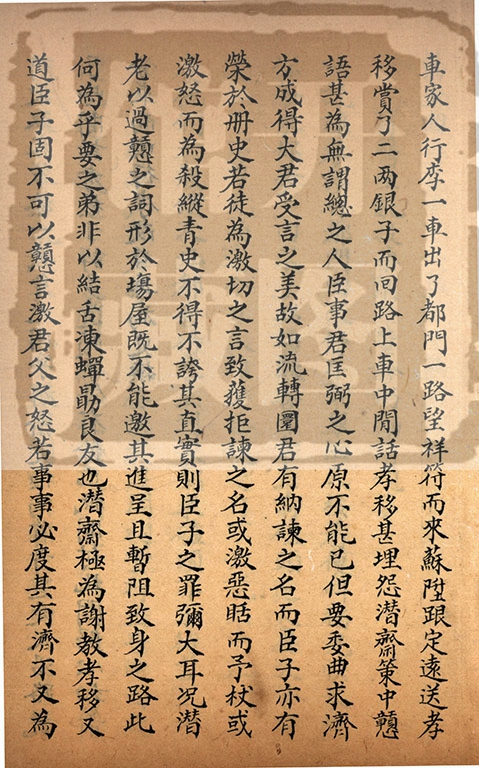 車家人行李一車出了都門一路望祥符而來蘇陞跟定遠送孝
移賞了二两銀子而回路上車中閒話孝移甚埋怨潛齋策中戇
語甚為無謂總之人臣事君匡弼之心原不能已但要委曲求濟
方成得大君受言之美故如流轉圜君有納諫之名而臣子亦有
榮於册史若徒為激切之言致蒦拒諫之名或激惡聒而予杖或
激怒而為殺縱青史不得不誇其直實則臣子之罪彌大耳况潛
老以過戇之詞形於塲屋既不能邀其進呈且暫阻致身之路此
何為乎要之弟非以結舌凍蟬勖良友也潛齋極為謝教孝移又
道臣子固不可以戇言激君父之怒若事事必度其有濟不又為